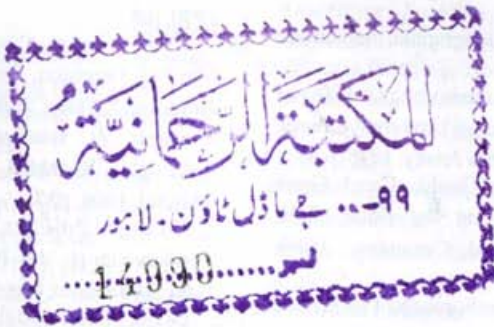 المكتبة الرحمانية
۹۹... جے ماڈل ٹاؤن - لاہور
نمبر